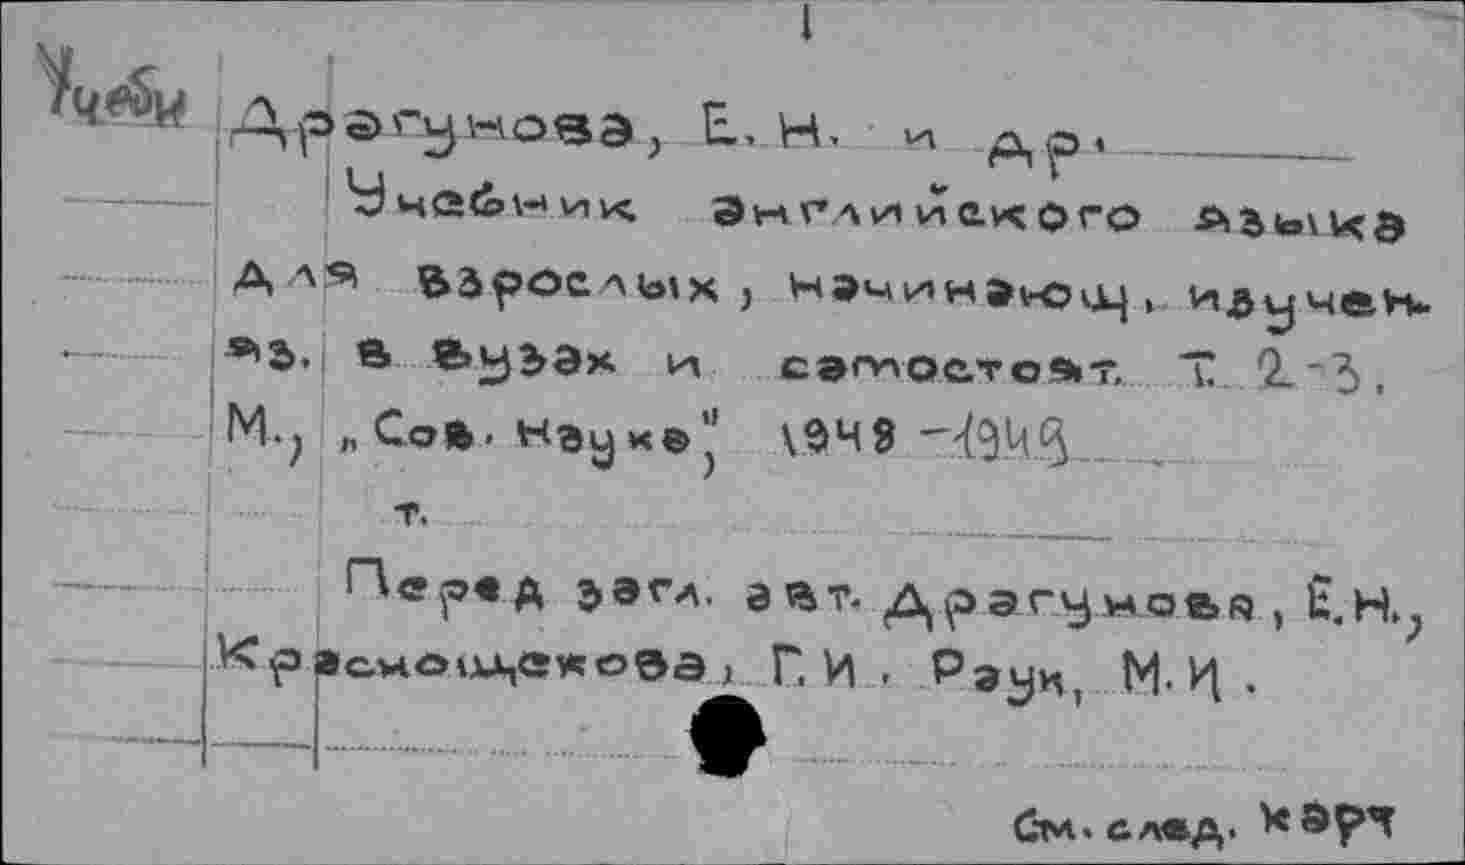 1
Учебн
Драгунова, Е. Н. и др.
Учебник английского языка
для взрослых, начинающ. изучен.
яз. в вузах и самостоят. Т. 2-3.
М., „Сов. наука", 1948-1949
т.
Перед загл. авт. Драгунова, Е.Н.,
Красмощекова, Г.И. Рауи, М.И.
См. след. карт